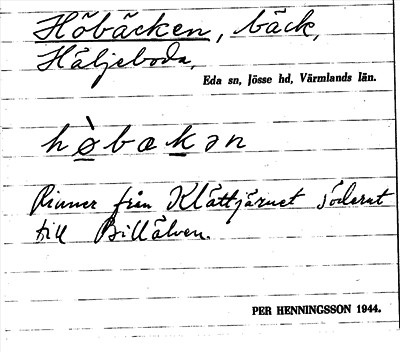 Höbäcken, bäck,
Häljeboda,
Eda sn, Jösse hd, Värmlands län.
hø̀bækən
Rinner från Klättjärnet söderut
till Billälven.
PER HENNINGSSON 1944.